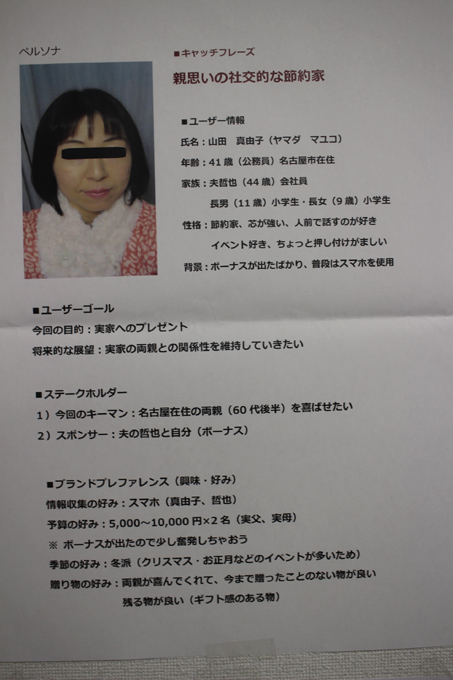 ペルソナ
■キャッチフレーズ
親思いの社交的な節約家
■ユーザー情報
氏名：山田　真由子（ヤマダ　マユコ）
年齢：41歳（公務員）名古屋市在住
家族：夫哲也（44歳）会社員
長男（11歳）小学生・長女（9歳）小学生
性格：節約家、芯が強い、人前で話すのが好き
イベント好き、ちょっと押し付けがましい
背景：ボーナスが出たばかり、普段はスマホを使用
■ユーザーゴール
今回の目的：実家へのプレゼント
将来的な展望：実家の両親との関係性を維持していきたい
■ステークホルダー
1）今回のキーマン：名古屋在住の両親（60代後半）を喜ばせたい
2）スポンサー：夫の哲也と自分（ボーナス）
■ブランドプレファレンス（興味・好み）
情報収集の好み：スマホ（真由子、哲也）
予算の好み：5,000～10,000円×2名（実父、実母）
※ ボーナスが出たので少し奮発しちゃおう
季節の好み：冬派（クリスマス・お正月などのイベントが多いため）
贈り物の好み：両親が喜んでくれて、今まで贈ったことのない物が良い
残る物が良い（ギフト感のある物）